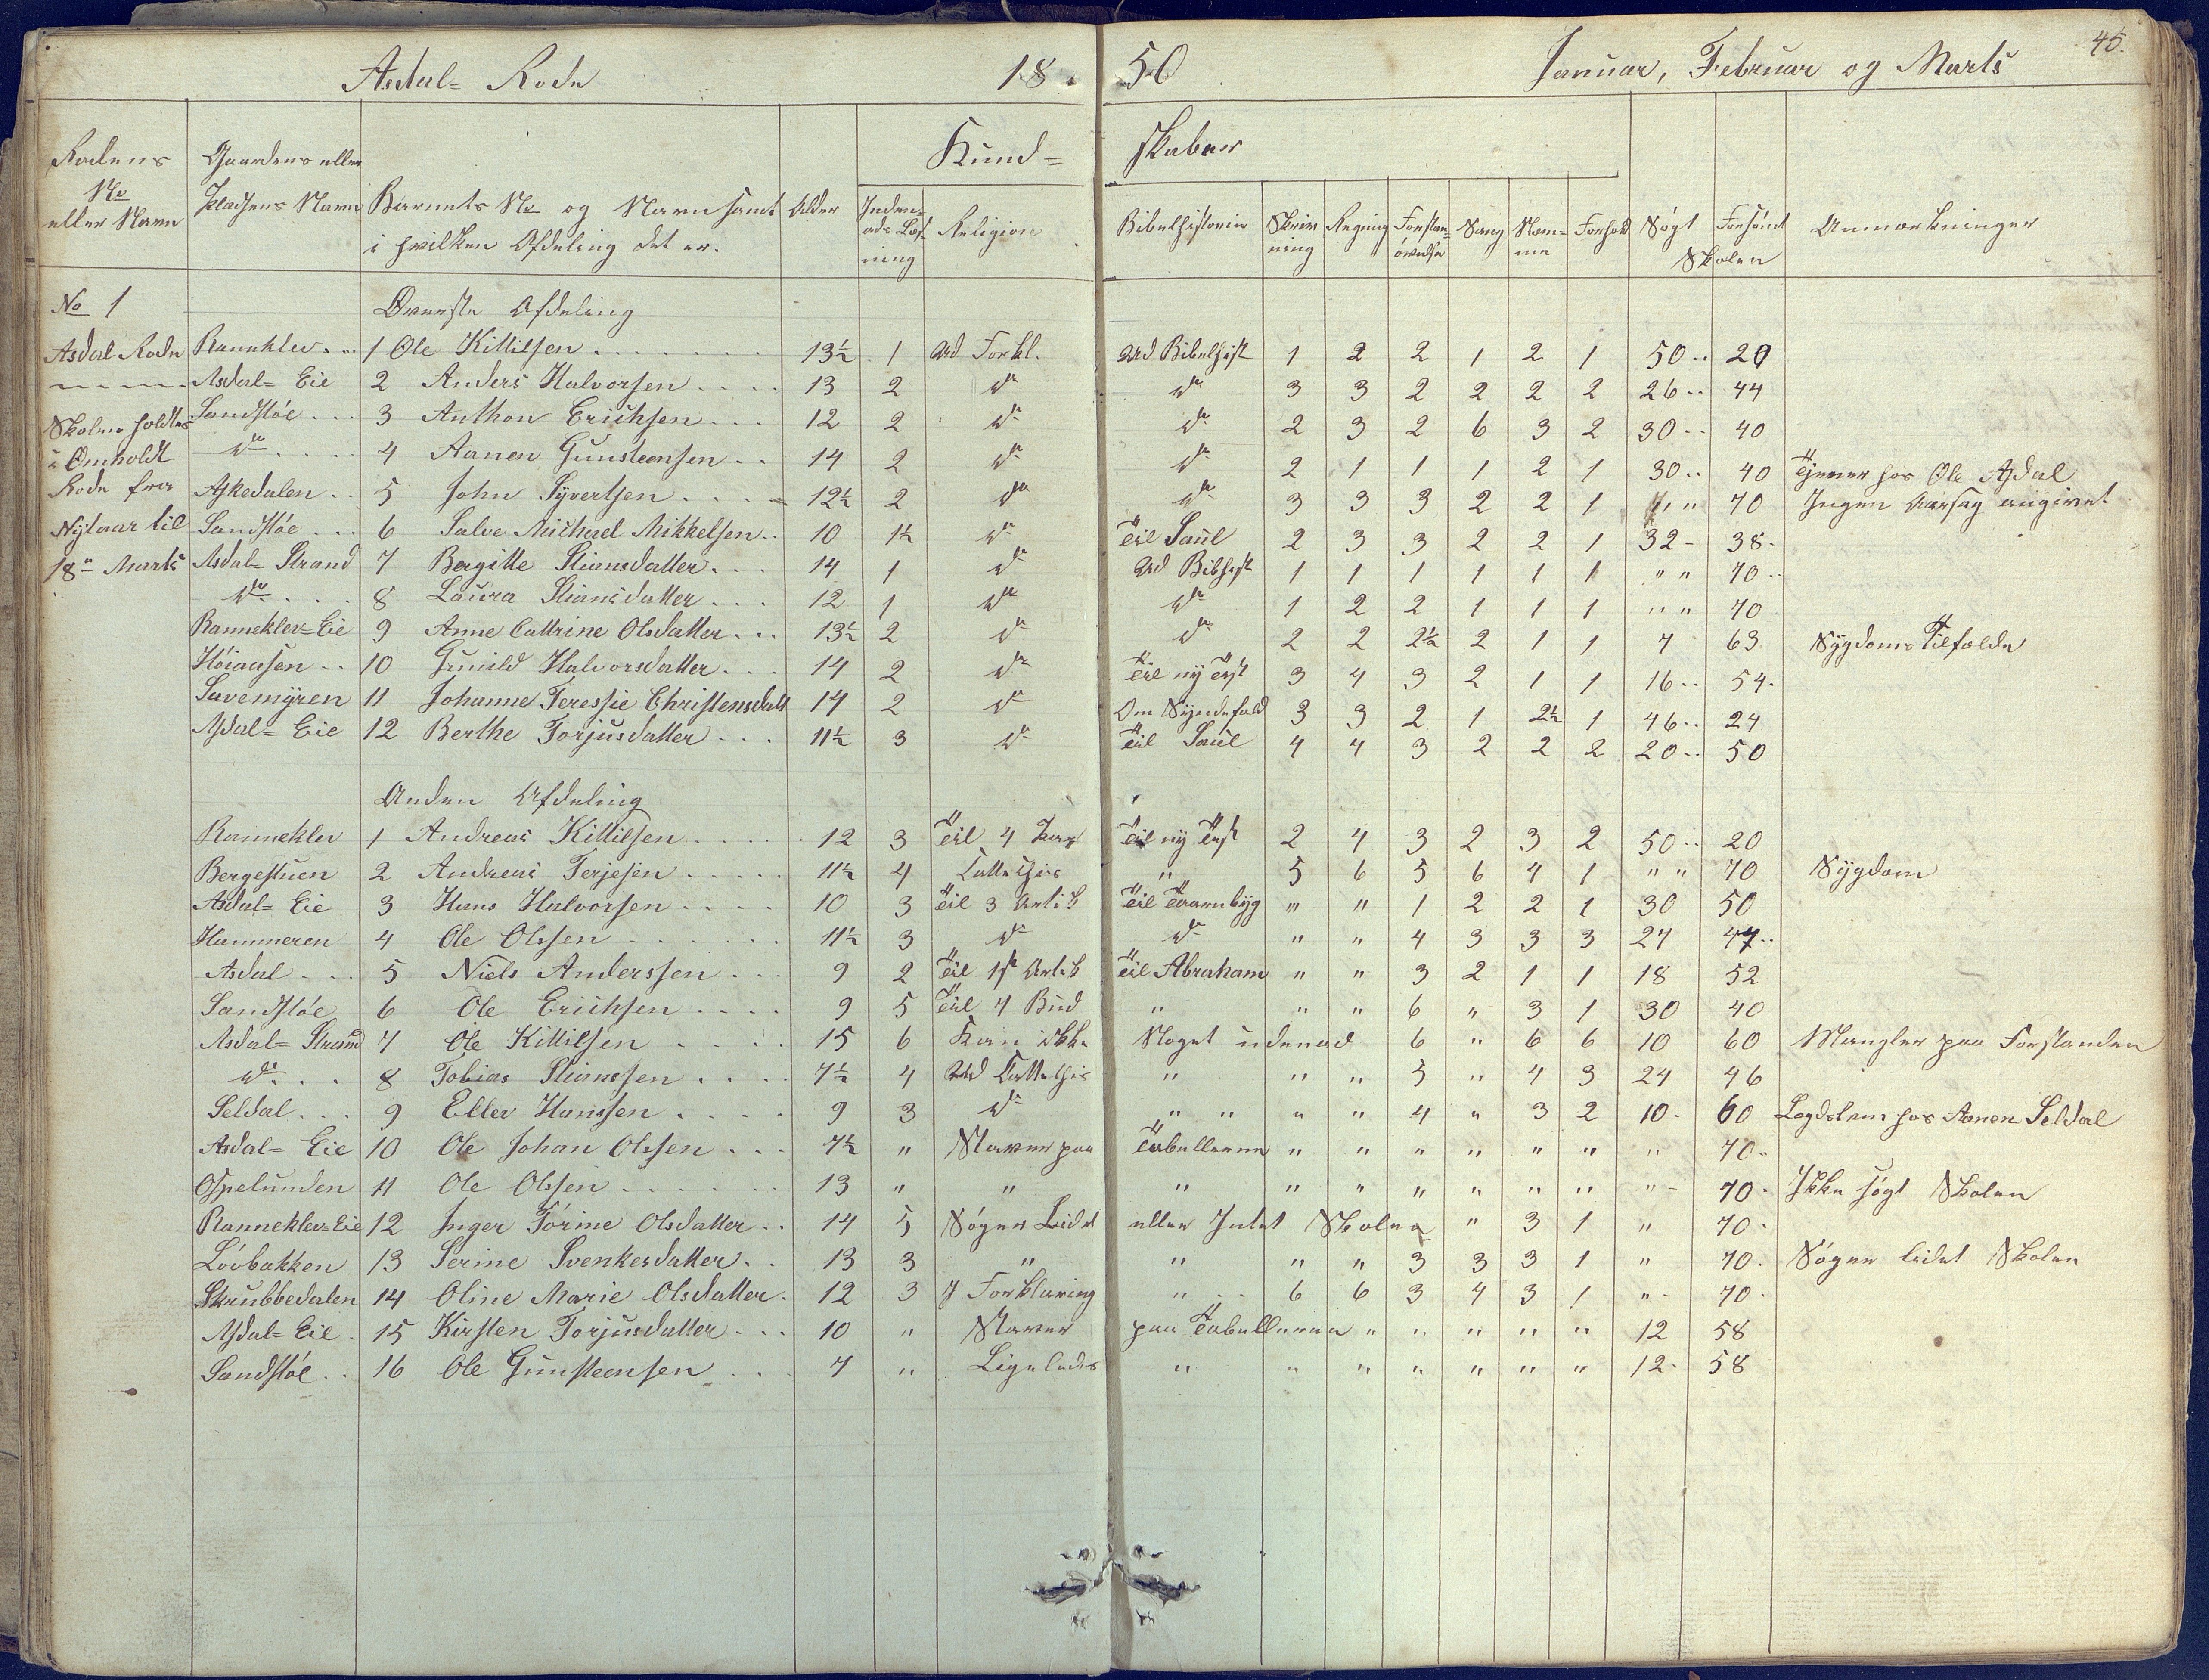 Asdal- Rode 18 50 Januar, Februar og Marts 45.
Kund- skaber
Rodens No eller Navn | Gaardens eller Pladsens Navn | Barnets No og Navn samt i hvilken Afdeling det er. | Alder | Inden- ads Læs- ning | Religion | Bibelhistorie | Skriv- ning | Regning | Forstan- øvelse | Sang | Nem- me | Forhold | Søgt | Forsømt | Skolen | Anmærkninger
No 1 Øverste Afdeling
Asdal Rode Ranneklev 1 Ole Kittilsen 13½ 1 Ud Forkl. Ud Bibelhist 1 2 2 1 2 1 50 20
Asdal- Eie 2 Anders Halvorsen 13 2 do do 3 3 2 2 2 2 26 44
Skolen holdtes Sandstøe 3 Anthon Erichsen 12 2 do do 2 3 2 6 3 2 30 40
i Omholdt do 4 Aanen Gunsteensen 14 2 do do 2 1 1 1 2 1 30 40 Tjener hos Ole Asdal
Rode fra Askedalen 5 John Syvertsen 12½ 2 do do 3 3 3 2 2 1 " " 70 Ingen Aarsag angivet
Nytaar til Sandstøe 6 Salve Michael Mikkelsen 10 1½ do Til Saul 2 3 3 2 2 1 32 38
18de Marts Asdal- Strand 7 Bergitte Stiansdatter 14 1 do Ud Bibhist 1 1 1 1 1 1 " " 70
do 8 Laura Stiansdatter 12 1 do do 1 2 2 1 1 1 " " 70
Ranneklev-Eie 9 Anne Cattrine Olsdatter 13½ 2 do do 2 2 2½ 2 1 1 7 63 Sygdoms Tilfælde
Høiaasen 10 Gunild Halvorsdatter 14 2 do Til ny Test 3 4 3 2 1 1 16 54
Savemyren 11 Johanne Teressie Christensdatt 14 2 do Om Syndefald 3 3 2 1 2½ 1 46 24
Asdal- Eie 12 Berthe Torjusdatter 11½ 3 do Til Saul 4 4 3 2 2 2 20 50
Anden Afdeling
Ranneklev 1 Andreas Kittilsen 12 3 Til 4 Part Til ny Test 2 4 3 2 3 2 50 20
Bergestuen 2 Andreas Terjesen 11½ 4 " 5 6 5 6 4 1 " " 70 Sygdom
Asdal- Eie 3 Hans Halvorsen 10 3 Til 3 Artik Til Taarnbyg " " 1 2 2 1 30 50
Hammeren 4 Ole Olsen 11½ 3 do do " " 4 3 3 3 27 47
Asdal 5 Niels Anderssen 9 2 Til 1st Artik Til Abraham " " 3 2 1 1 18 52
Sandstøe 6 Ole Erichsen 9 5 Til 4 Bud " " " 6 " 3 1 30 40
Asdal- Strand 7 Ole Kittilsen 15 6 Kan ikke Noget udenad 6 " 6 6 10 60 Mangler paa Forstanden
do 8 Tobias Stianssen 7½ 4 " " " 5 " 4 3 24 46
Seldal 9 Ellev Hanssen 9 3 do " " " " 4 " 3 2 10 60 Legdslem hos Aanen Seldal
Asdal- Eie 10 Ole Johan Olssen 7½ " Staver paa Tabellerne " " " " " " " 70
Ospelunden 11 Ole Olssen 13 " " " " " " " " " " 70 Ikke søgt Skolen
Ranneklev-Eie 12 Inger Tørine Olsdatter 14 5 Søger Lidet eller Intet Skolen " 3 1 " 70
Løvbakken 13 Serine Svenkesdatter 13 3 " " " " 3 3 3 1 " 70 Søger lidet Skolen
Skrubbedalen 14 Oline Marie Olsdatter 12 3 I Forklaring " 6 6 3 4 3 1 " 70
Asdal- Eie 15 Kirsten Torjusdatter 10 " Staver paa Tabellerne " " " " " 12 58
Sandstøe 16 Ole Gunsteensen 7 " Ligeledes " " " " " " " 12 58